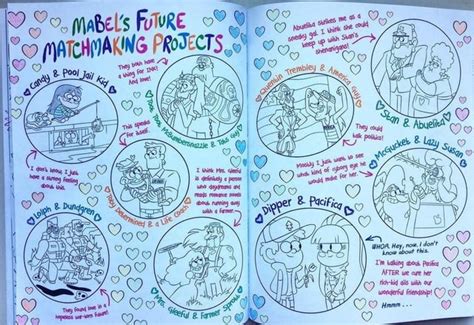 MABEL'S FUTURE
MATCHMAKING PROJECTS
Candy & Pool Jail Kid
They both have
a thing for INK!
And love!
& Tats Guy
This speaks
for itself.
Toby Determined & a Life Coach
I don't know, I just
have a nummy feeling
about this.
I think Mrs. Gleeful
is definitely a person
who daydreams and
reads romance novels
about running away
with a farmer.
Lolph & Dundgren
They found love in a
hopeless war-torn future!
Mrs. Gleeful & Farmer Sprott
Abuelita strikes me as a
speedy gal. I think she could
keep up with Stan's
shenanigans!
Quentin Trembley & America Guy
Stan & Abuelita
They could
talk politics!
McGucket & Lazy Susan
Mostly I just want to see
what kind of cyborg eye he
would make for her.
Dipper & Pacifica
WHOA. Hey, now. I don't
know about this.
I'm talking about Pacifica
AFTER we cure her
rich-kid ails with our
wonderful friendship!
Hmmm...